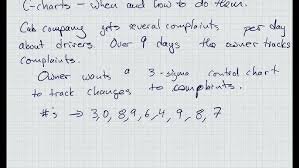 C-charts - when and how to do them.
Cab company gets several complaints per day
about drivers. Over 9 days the owner tracks
complaints.
Owner wants a 3-sigma control chart
to track changes to complaints.
#'s → 3,0,8,9,6,4,9,8,7